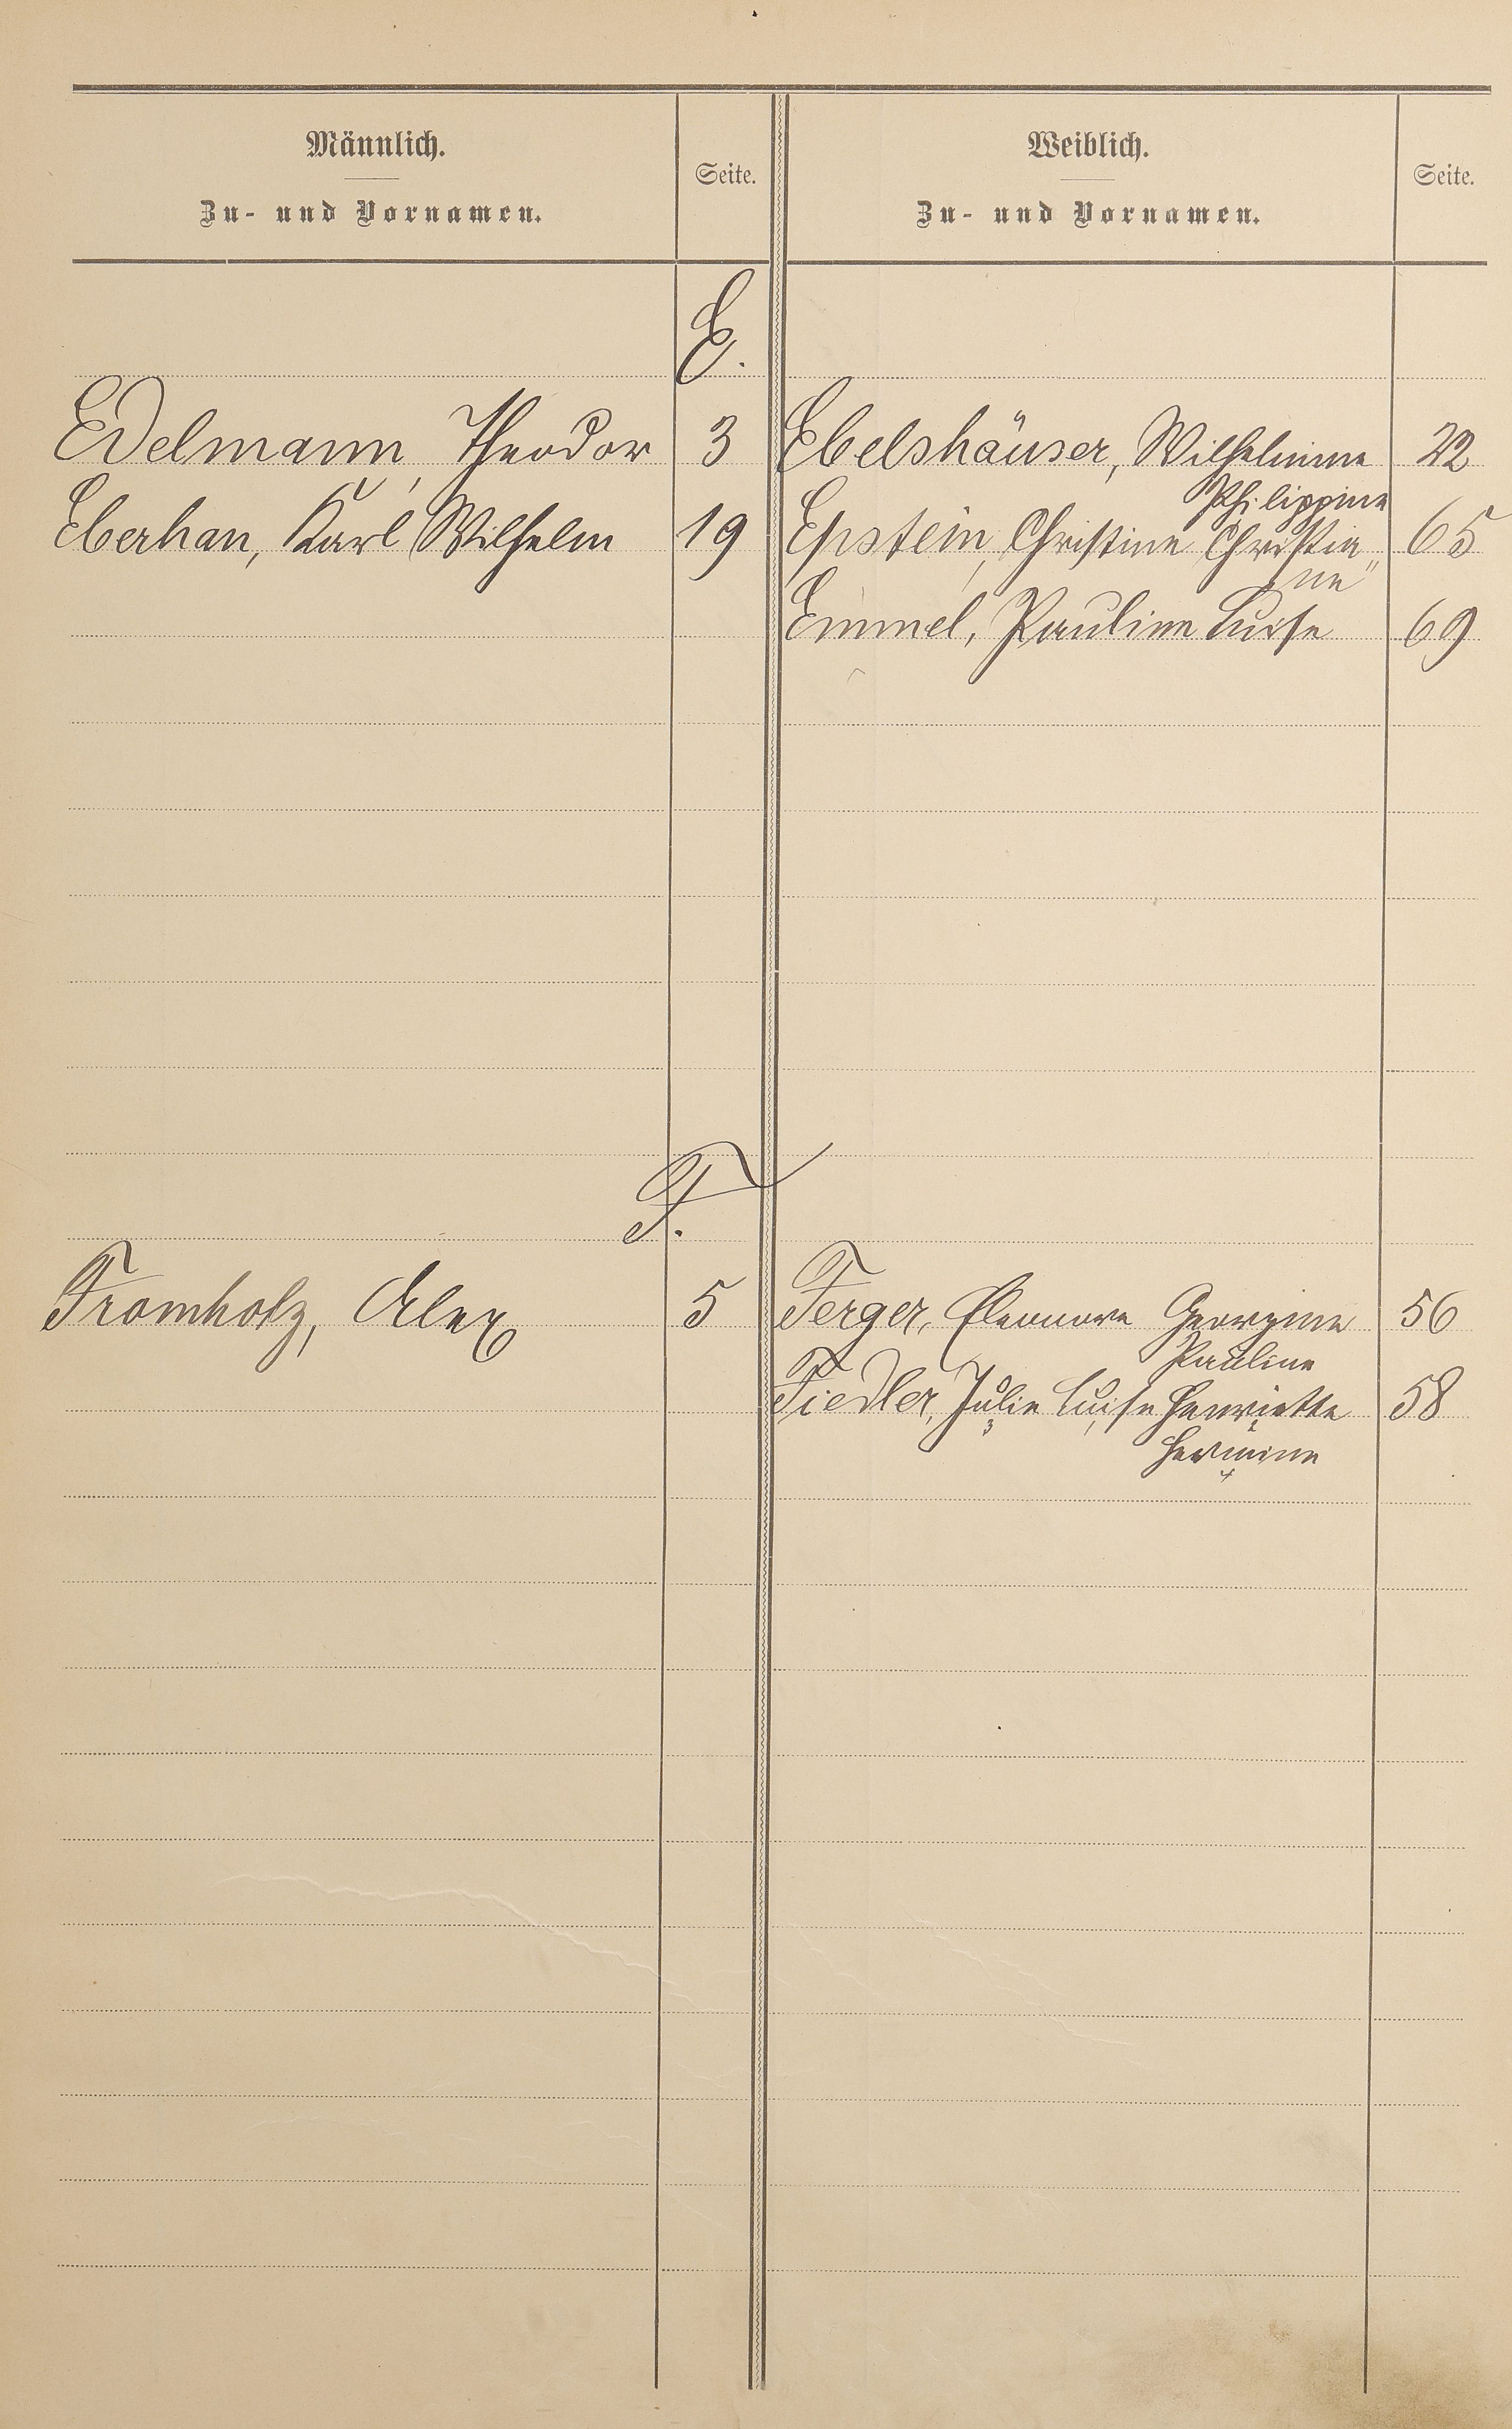 Männlich.
Zu- und Vornamen.
Seite.
Weiblich.
Zu- und Vornamen.
Seite.
E.
Edelmann, Theodor 3 Ebelshäuser, Wilhelmine 22
Philippine
Eberhan, Karl Wilhelm 19 Epstein, Christine Christia„ 65
ne
Emmel, Pauline Luise 69
F.
Fromholz, Alex 5 Ferger, Eleonore Georgine 56
Pauline
Fiedler, Julie Luise Henriette 58
Hermine